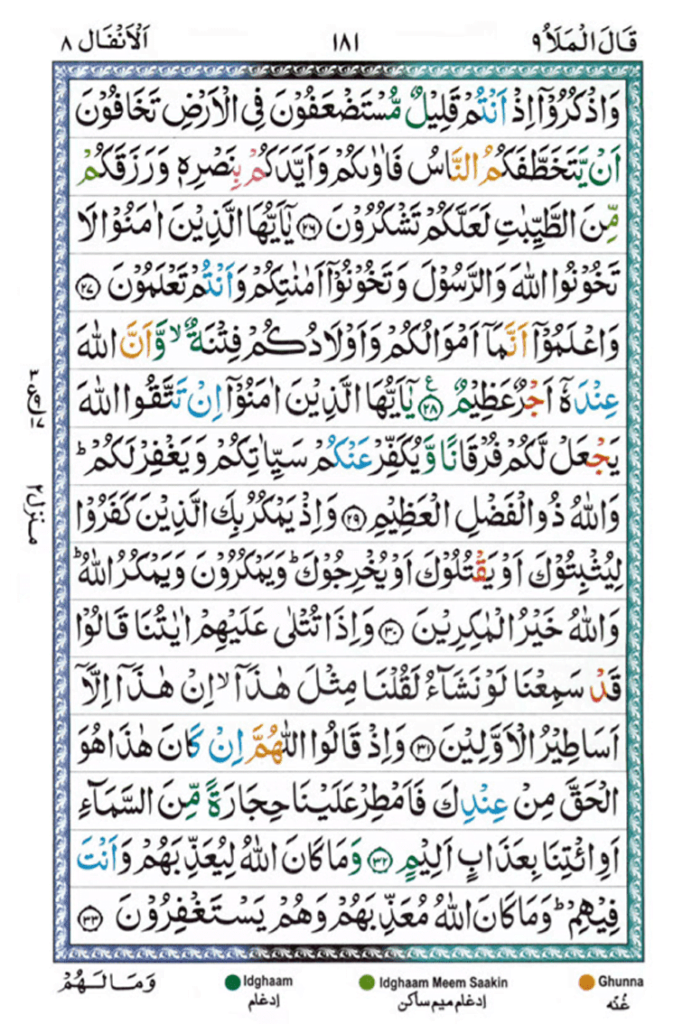 قَالَ الْمَلَاُ ۹ ۱۸۱ اَلْاَنْفَال ۸
وَاذْكُرُوْۤا اِذْ اَنْتُمْ قَلِیْلٌ مُّسْتَضْعَفُوْنَ فِی الْاَرْضِ تَخَافُوْنَ
اَنْ یَّتَخَطَّفَكُمُ النَّاسُ فَاٰوٰىكُمْ وَاَیَّدَكُمْ بِنَصْرِهٖ وَرَزَقَكُمْ
مِّنَ الطَّیِّبٰتِ لَعَلَّكُمْ تَشْكُرُوْنَ ﴿۲۶﴾ یٰۤاَیُّهَا الَّذِیْنَ اٰمَنُوْا لَا
تَخُوْنُوا اللّٰهَ وَالرَّسُوْلَ وَتَخُوْنُوْۤا اَمٰنٰتِكُمْ وَاَنْتُمْ تَعْلَمُوْنَ ﴿۲۷﴾
وَاعْلَمُوْۤا اَنَّمَاۤ اَمْوَالُكُمْ وَاَوْلَادُكُمْ فِتْنَةٌ ۙ وَّاَنَّ اللّٰهَ
عِنْدَهٗۤ اَجْرٌ عَظِیْمٌ ﴿۲۸﴾ ع یٰۤاَیُّهَا الَّذِیْنَ اٰمَنُوْۤا اِنْ تَتَّقُوا اللّٰهَ
یَجْعَلْ لَّكُمْ فُرْقَانًا وَّیُكَفِّرْ عَنْكُمْ سَیِّاٰتِكُمْ وَیَغْفِرْ لَكُمْ ؕ
وَاللّٰهُ ذُو الْفَضْلِ الْعَظِیْمِ ﴿۲۹﴾ وَاِذْ یَمْكُرُ بِكَ الَّذِیْنَ كَفَرُوْا
لِیُثْبِتُوْكَ اَوْ یَقْتُلُوْكَ اَوْ یُخْرِجُوْكَ ؕ وَیَمْكُرُوْنَ وَیَمْكُرُ اللّٰهُ ؕ
وَاللّٰهُ خَیْرُ الْمٰكِرِیْنَ ﴿۳۰﴾ وَاِذَا تُتْلٰی عَلَیْهِمْ اٰیٰتُنَا قَالُوْا
قَدْ سَمِعْنَا لَوْ نَشَآءُ لَقُلْنَا مِثْلَ هٰذَاۤ ۙ اِنْ هٰذَاۤ اِلَّاۤ
اَسَاطِیْرُ الْاَوَّلِیْنَ ﴿۳۱﴾ وَاِذْ قَالُوا اللّٰهُمَّ اِنْ كَانَ هٰذَا هُوَ
الْحَقَّ مِنْ عِنْدِكَ فَاَمْطِرْ عَلَیْنَا حِجَارَةً مِّنَ السَّمَآءِ
اَوِ ائْتِنَا بِعَذَابٍ اَلِیْمٍ ﴿۳۲﴾ وَمَا كَانَ اللّٰهُ لِیُعَذِّبَهُمْ وَاَنْتَ
فِیْهِمْ ؕ وَمَا كَانَ اللّٰهُ مُعَذِّبَهُمْ وَهُمْ یَسْتَغْفِرُوْنَ ﴿۳۳﴾
منزل ۲
وَمَا لَهُمْ
Idghaam Idghaam Meem Saakin Ghunna
إدغام إدغام ميم ساكن غُنّه